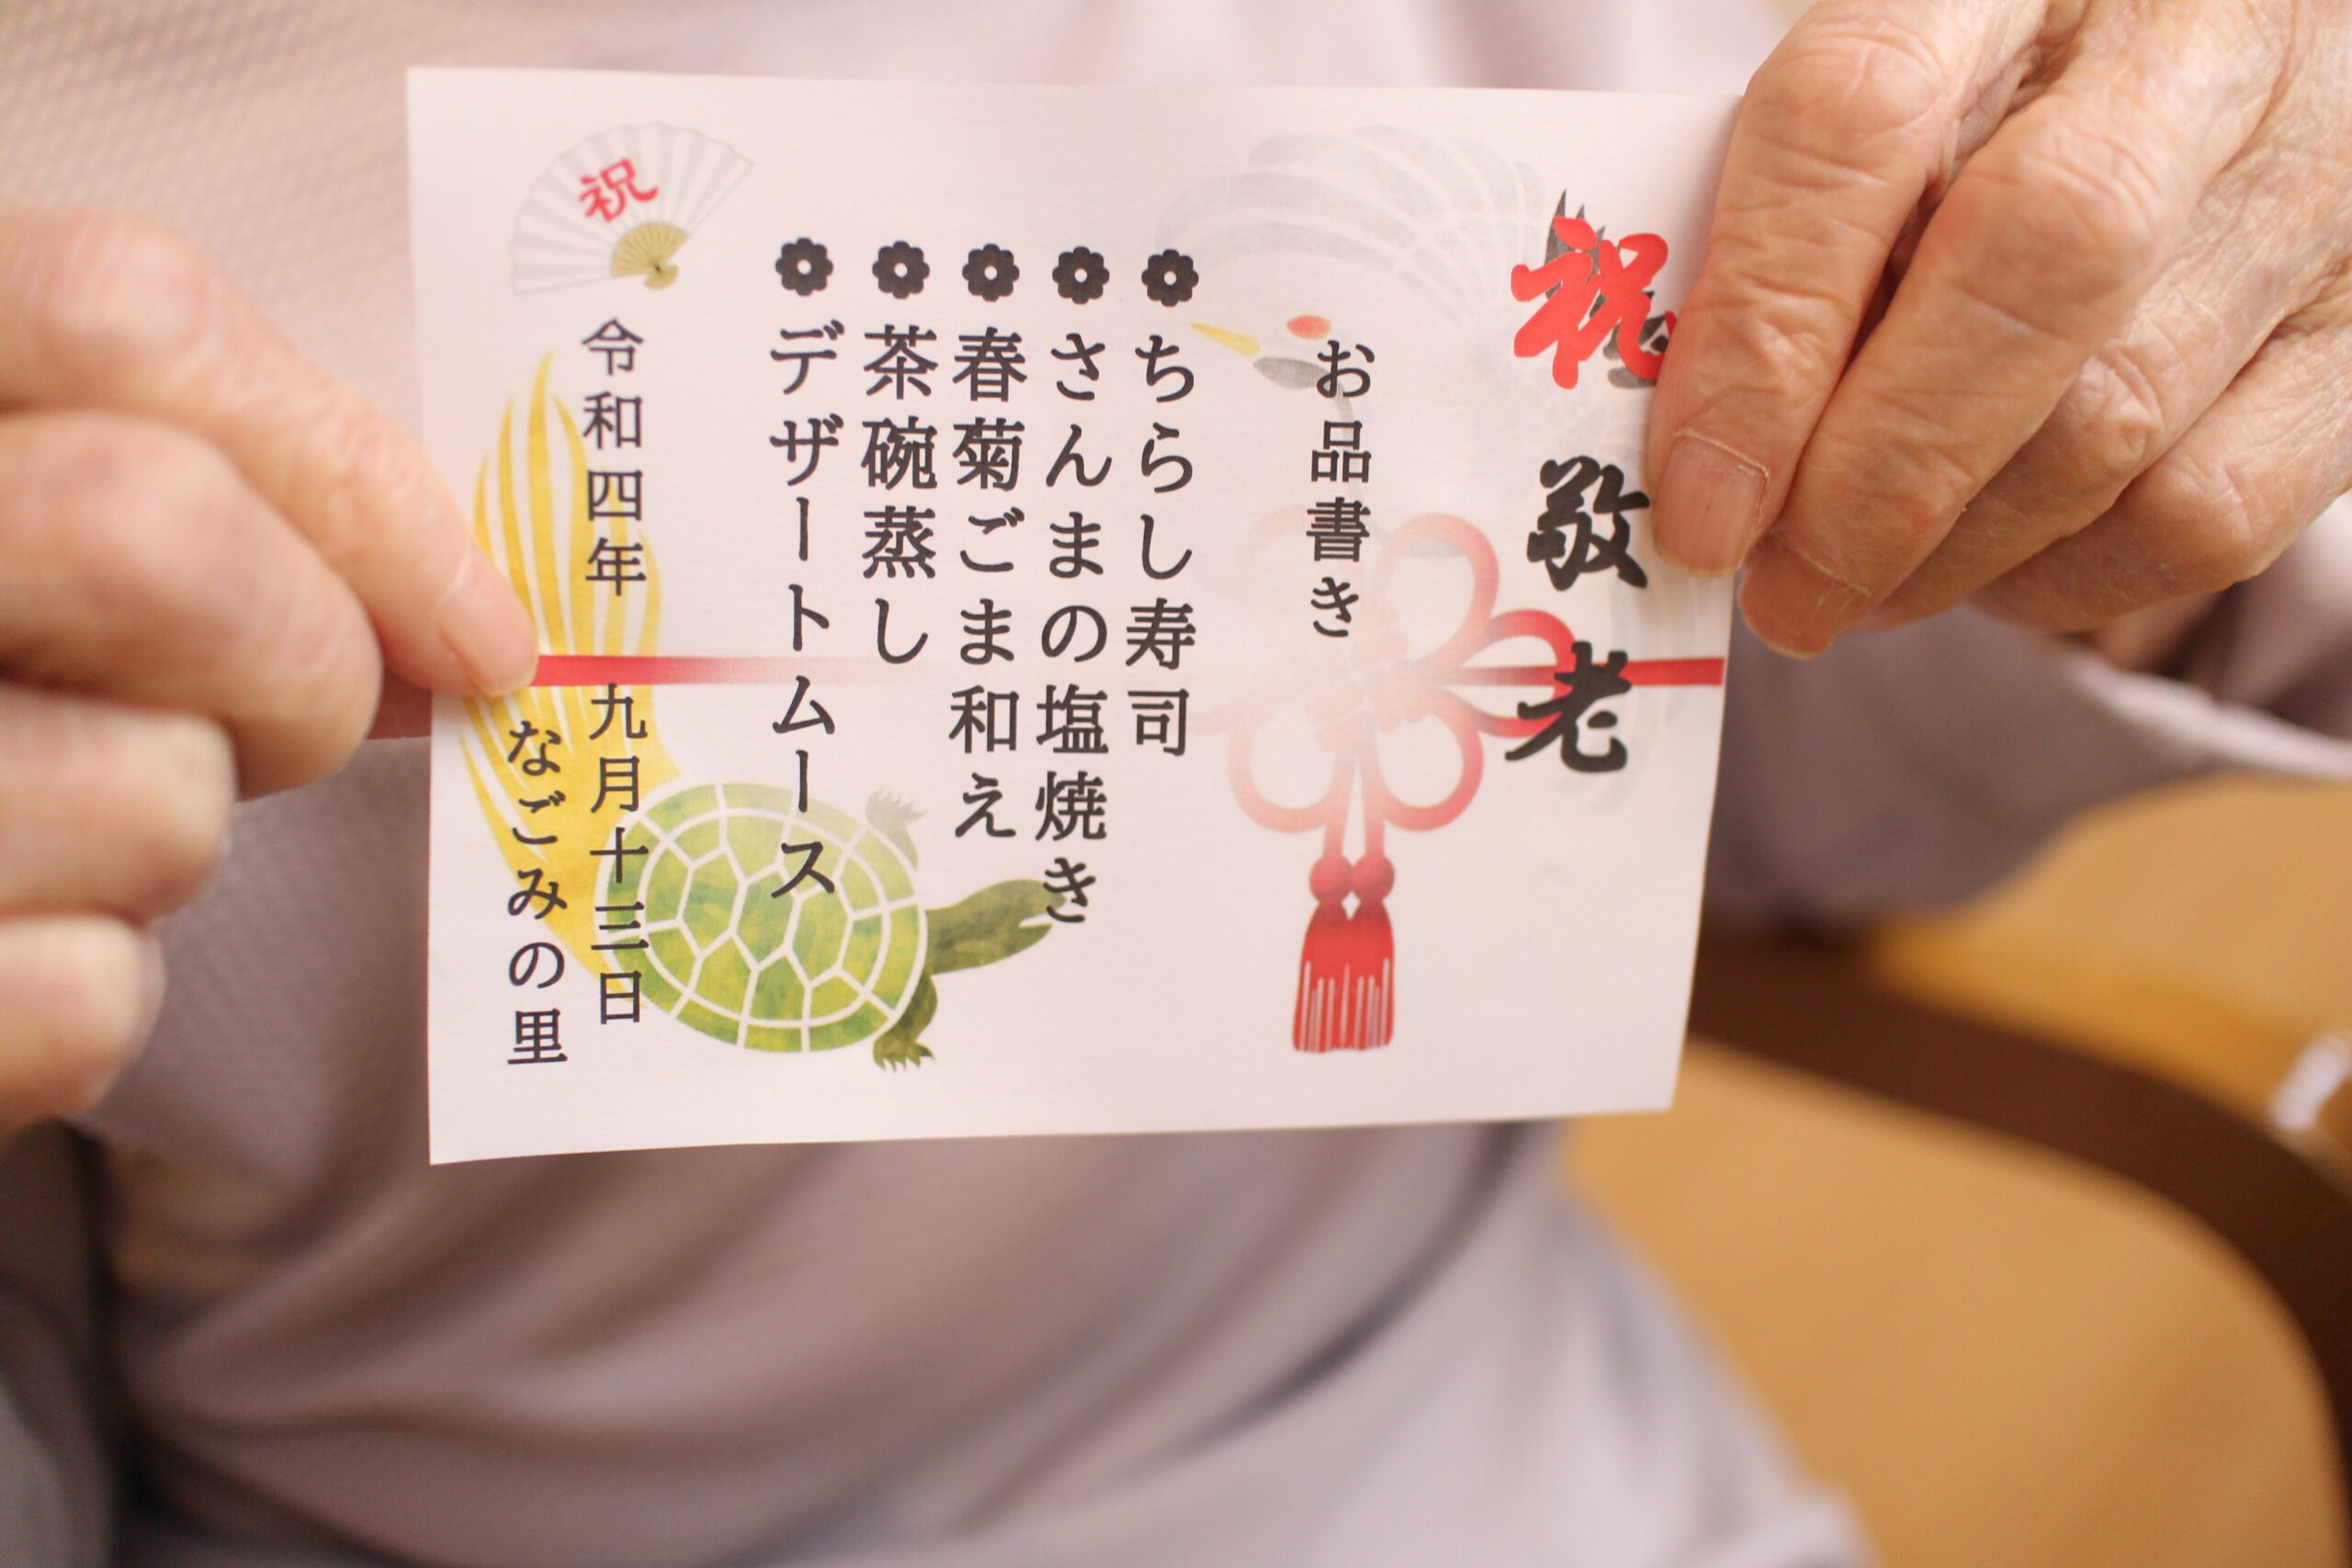 祝敬老
お品書き
ちらし寿司
さんまの塩焼き
春菊ごま和え
茶碗蒸し
デザートムース
祝
令和四年 九月十三日
なごみの里